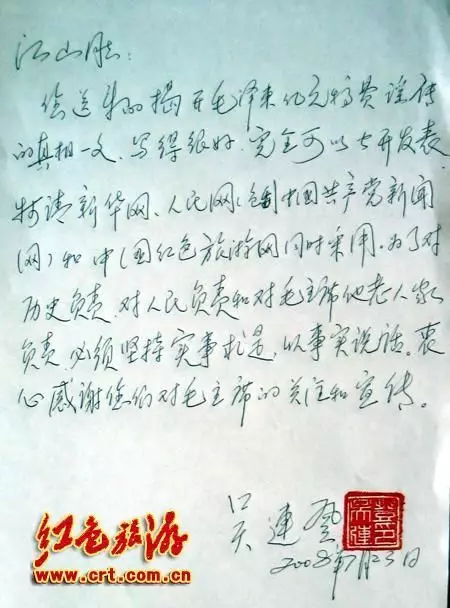 江山胜：
您送来的揭开毛泽东亿元稿费谣传
的真相一文、写得很好，完全可以公开发表，
特请新华网、人民网（包括中国共产党新闻
网）和中国红色旅游网同时采用。为了对
历史负责，对人民负责和对毛主席他老人家
负责，必须坚持实事求是，以事实说话。衷
心感谢您们对毛主席的关注和宣传。
吴连登
2008年7月23日
红色旅游
www.crt.com.cn